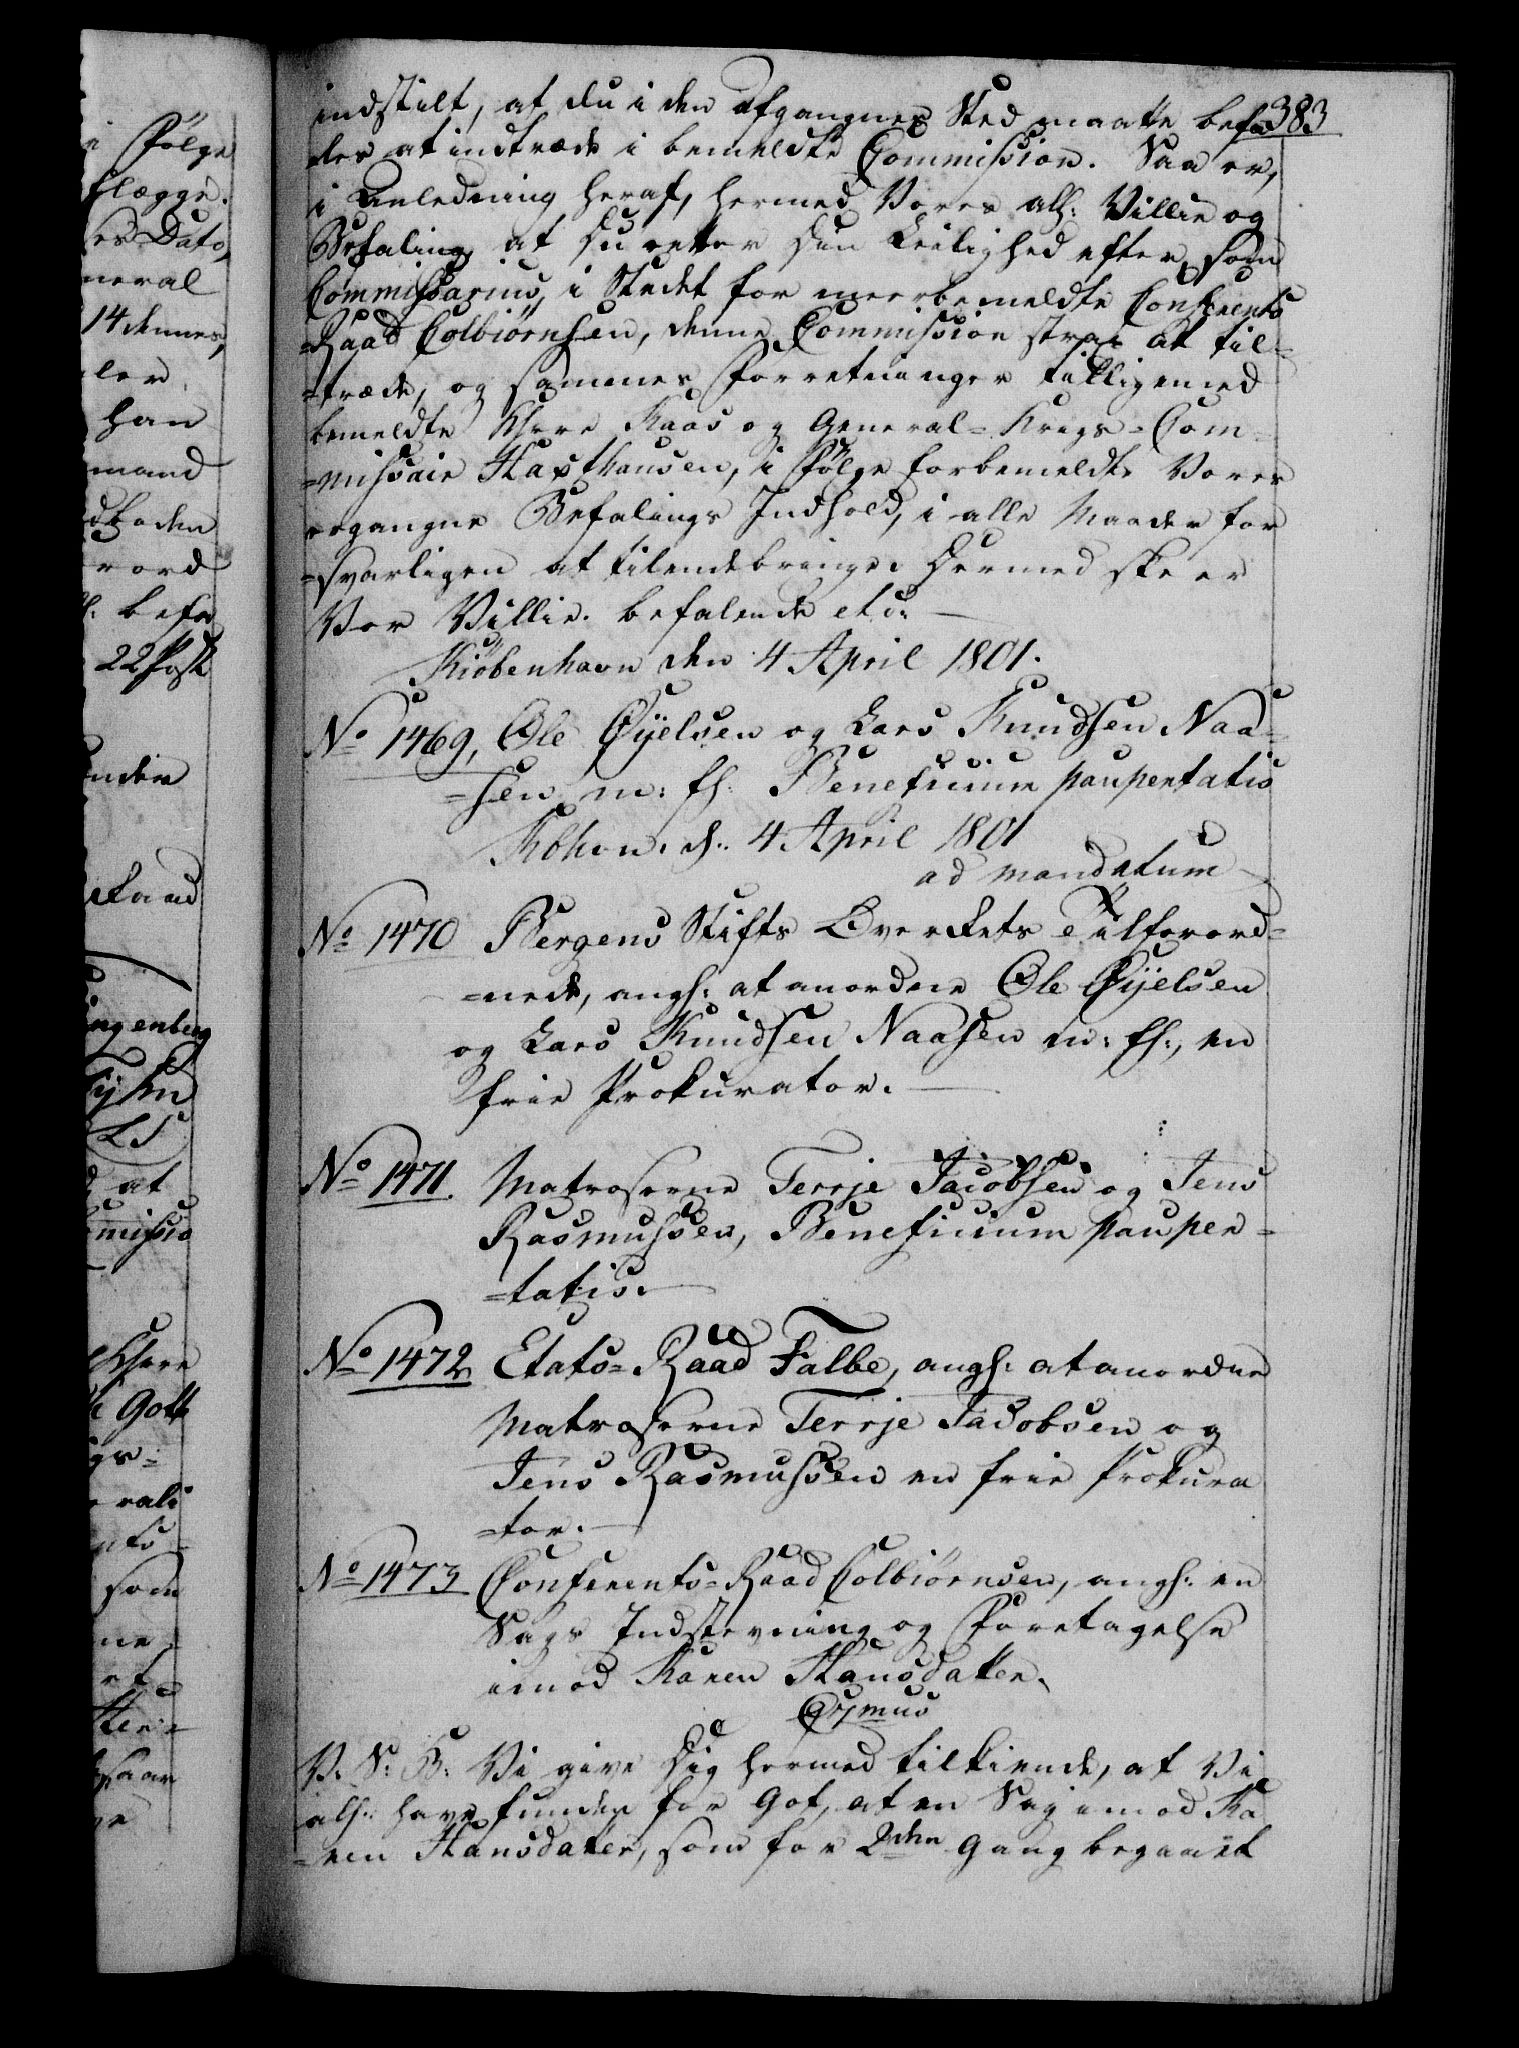 383
indstilt, at du i den afgangnes Sted maatte befa
les at indtræde i bemeldte Commission. Saa er,
i Anledning heraf, hermed Vores all: Villie og
Befaling at Du retter din Leilighed efter, som
Commissarius, i Stedet for meerbemeldte Conferents
=Raad Colbiørnsen, denne Commission strax at til=
=træde, og sammes Forretninger tilligemed
bemeldte Hhrr Kaas og General=Krigs=Com=
=missair Haxthausen, i Følge forbemeldte Vores
ergangne Befalings Indhold, i alle Maader for
=svarligen at tilendebringe. Dermed skeer
Vor Villie. befalende etc:
Kiøbenhavn den 4 April 1801.
No 1469, Ole Øyelsen og Lars Knudsen Naa=
=sen m: fl: Beneficium paupertatis
Kbhvn. d. 4 April 1801
ad mandatum
No 1470 Bergens Stifts Øvrikets Tilforord=
=nede, angl: at anordne Ole Øyelsen
og Lars Knudsen Naasen m: fl:, en
frie Prokurator.
No 1471. Matroserne Terrje Jacobsen og Jens
Rasmussen, Beneficium pauper=
=tatis.
No 1472 Etats=Raad Falbe, angl: at anordne
Matroserne Terrje Jacobsen og
Jens Rasmussen en frie Prokura
=tor.
No 1473 Conferents=Raad Colbiørnsen, angl: en
Sags Indstevning og Foretagelse
imod Karen Hansdatter.
C 7mus
V. S. B: Vi give Dig hermed tilkiende, at Vi
all: have funden for Got, at en Sag imod Ka
=ren Hansdatter, som for 2den Gang begaaet